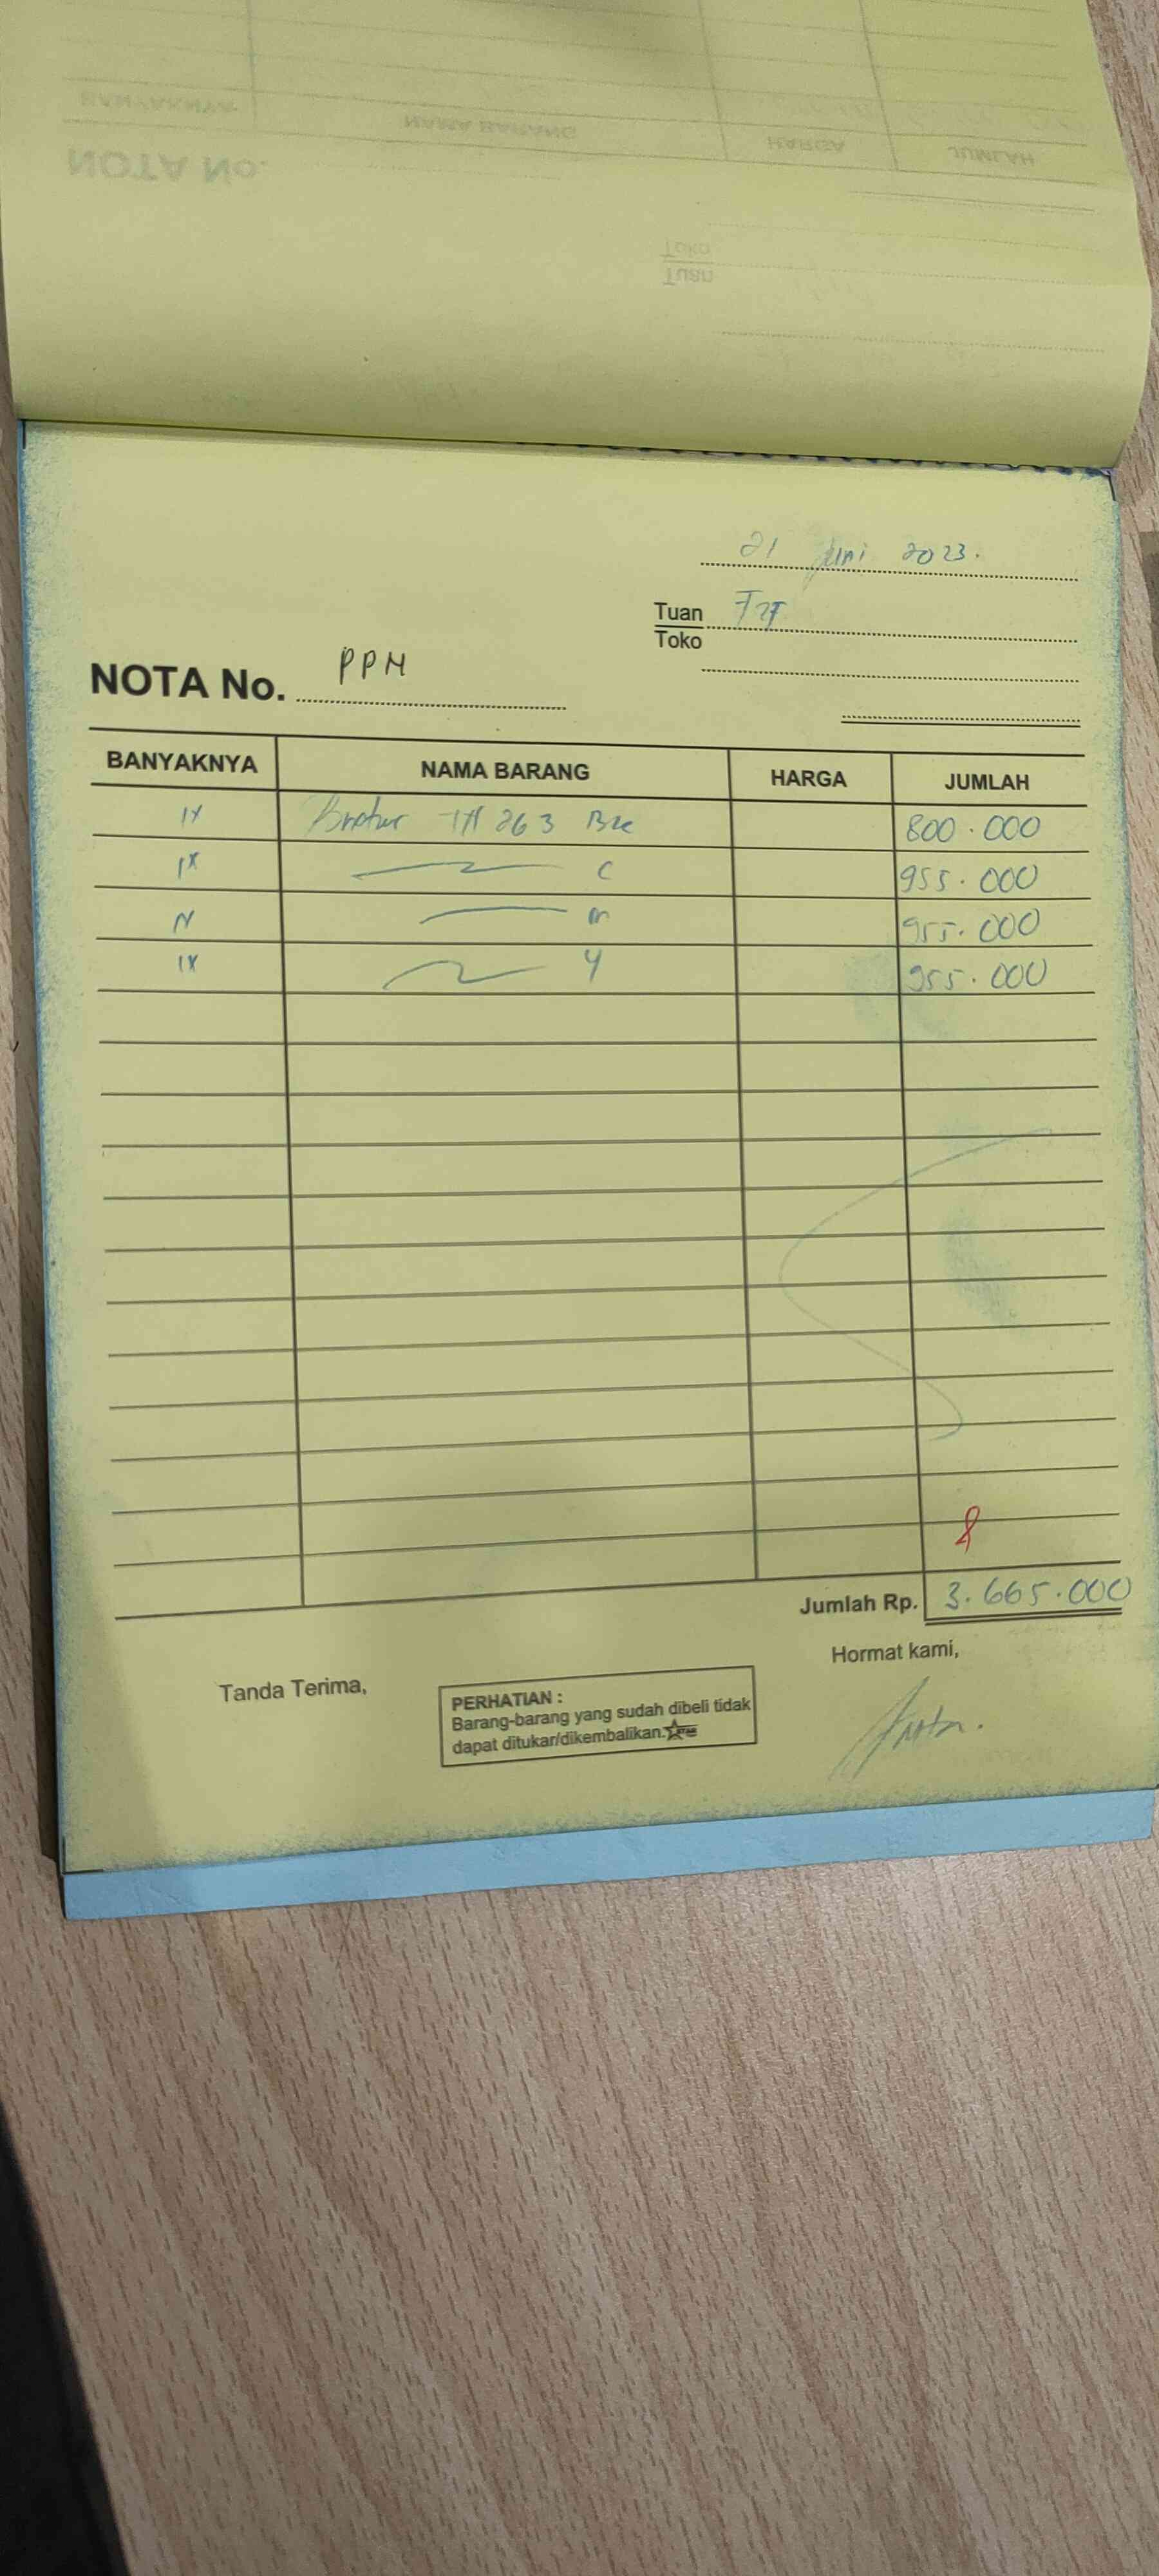 BANYAKNYA NAMA BARANG HARGA JUMLAH
NOTA No.
Toko
Tuan
21 Juni 2023.
Tuan
Toko
NOTA No. PPM
BANYAKNYA NAMA BARANG HARGA JUMLAH
1X Brother TN 263 800.000
1X C 955.000
m 955.000
1X Y 955.000
Jumlah Rp. 3.665.000
Hormat kami,
Tanda Terima,
PERHATIAN :
Barang-barang yang sudah dibeli tidak
dapat ditukar/dikembalikan.